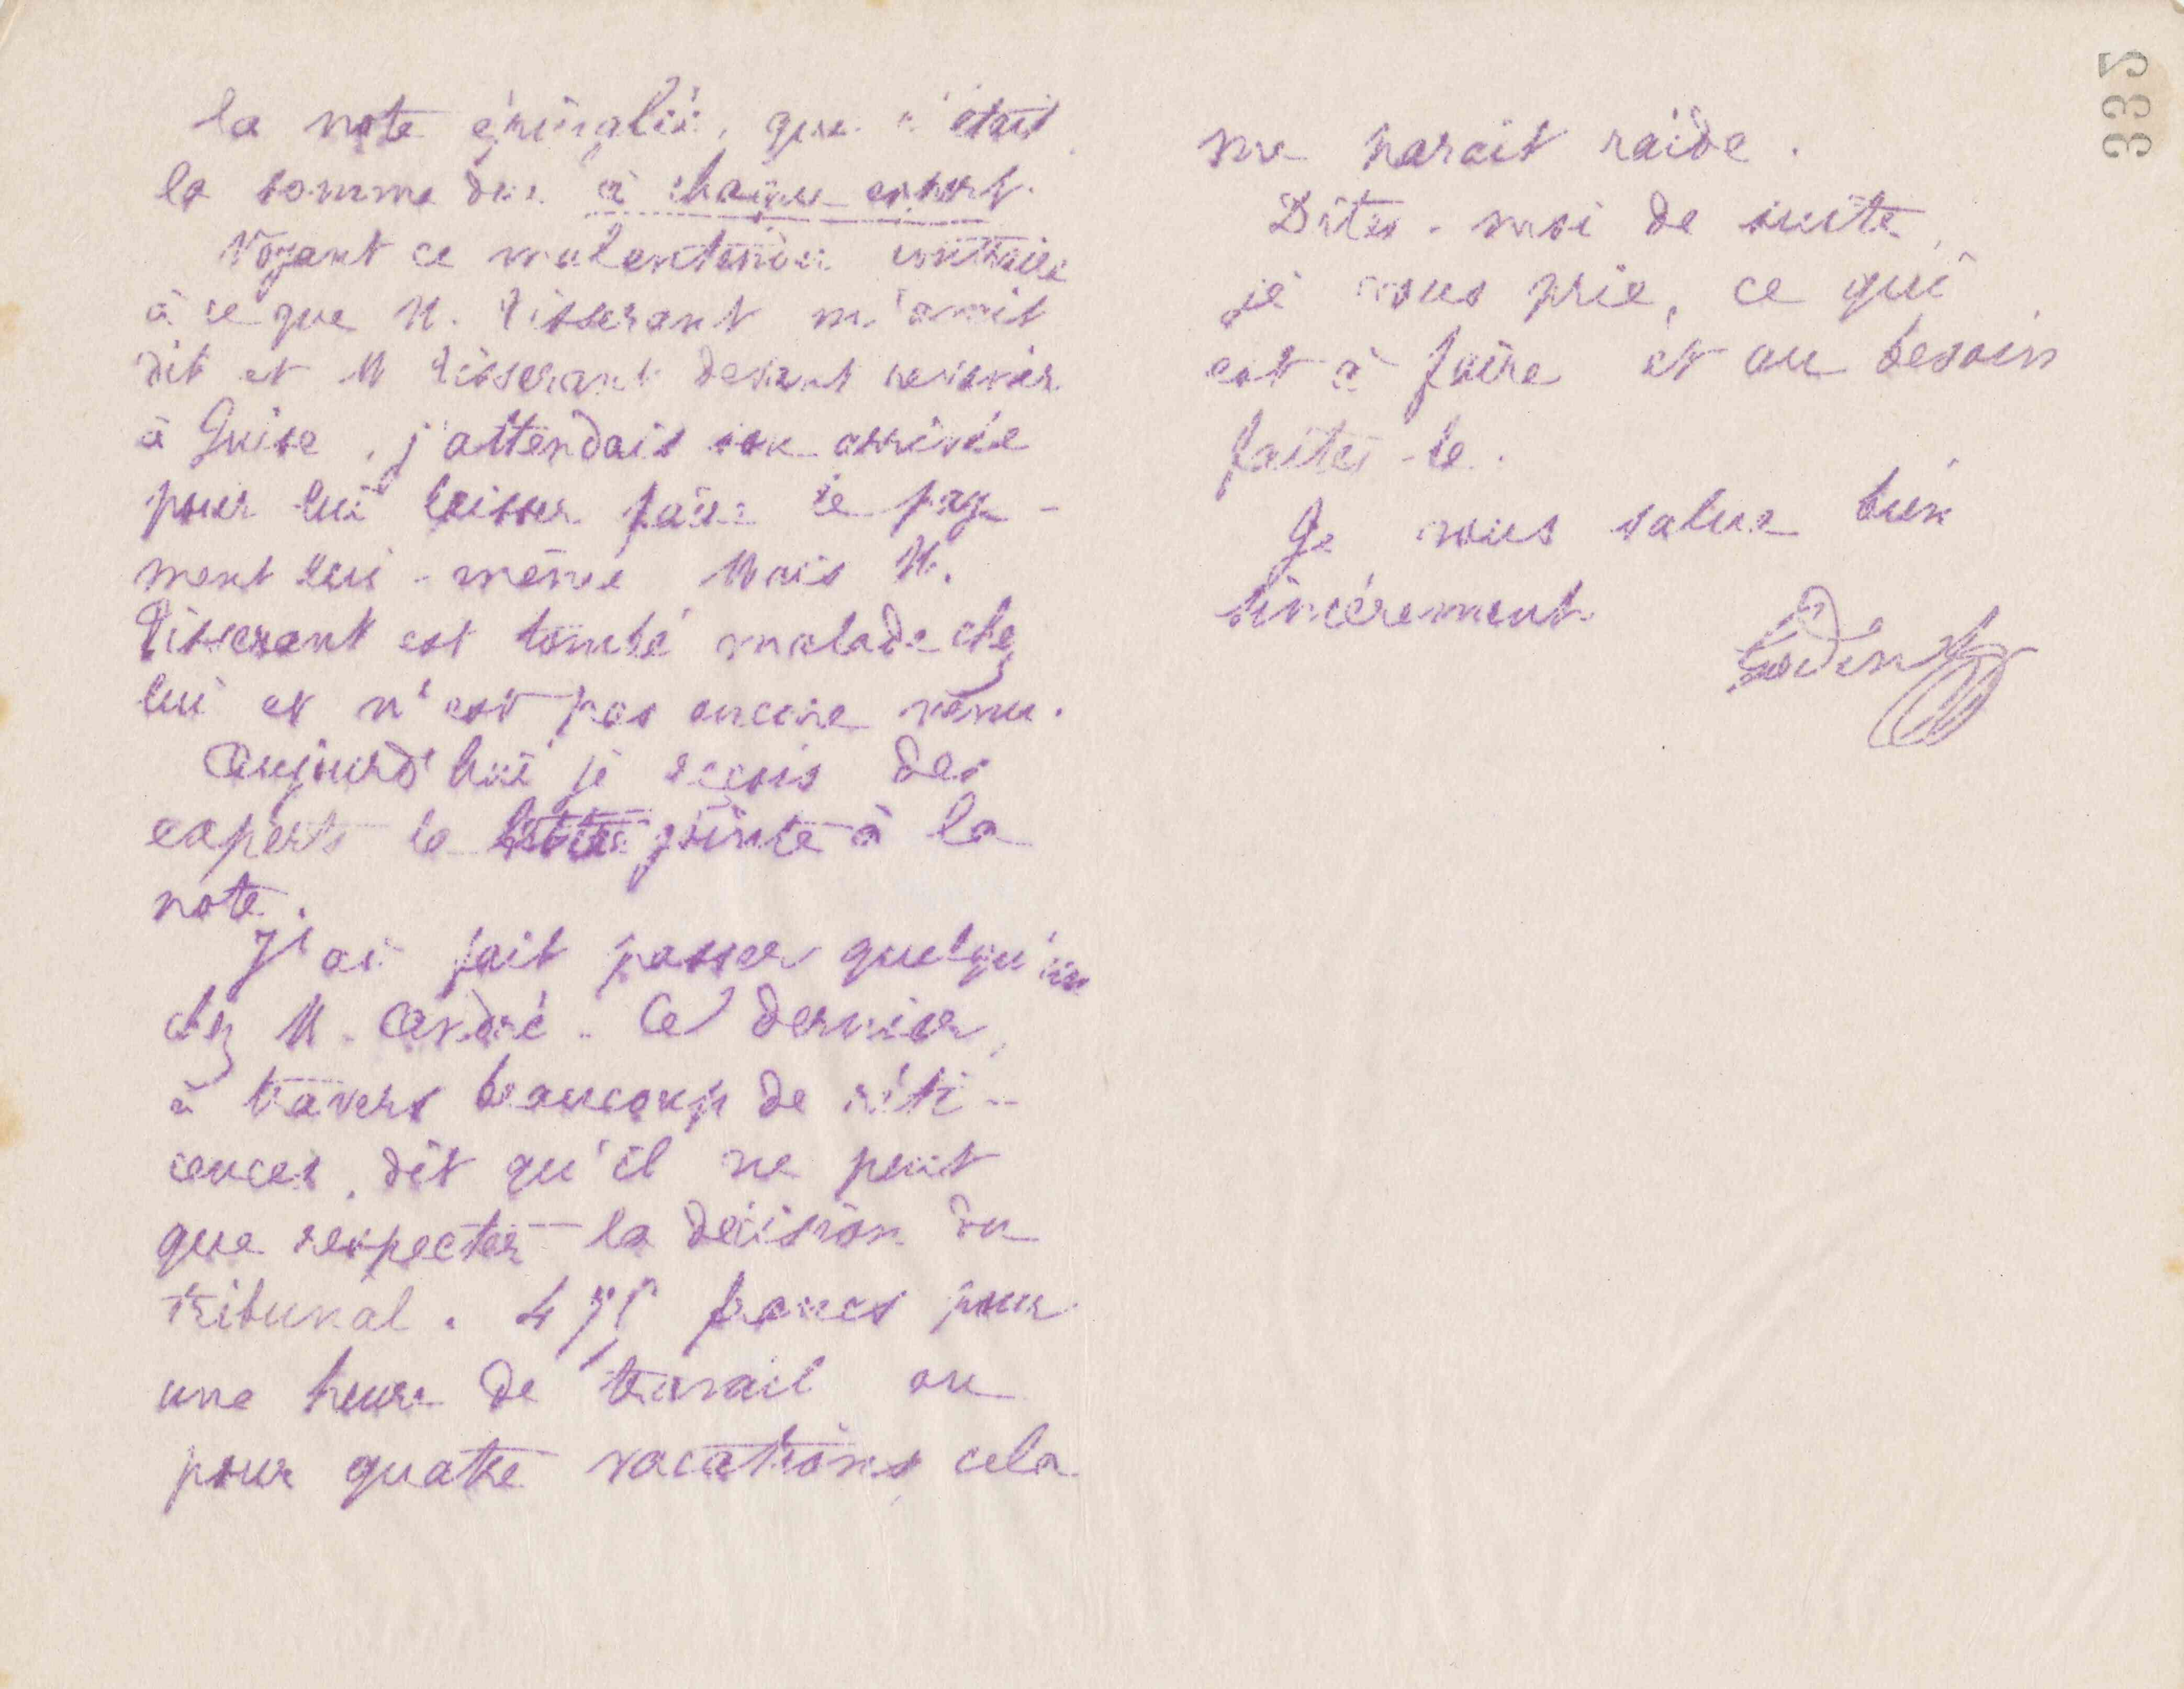 la note que c'était
la somme due à chaque expert.
Voyant ce malentendu contraire
à ce que M. Tisserant m'avait
dit et M Tisserant devant revenir
à Guise, j'attendais son arrivée
pour lui laisser faire le paye-
ment lui-même Mais M.
Tisserant est tombé malade chez
lui et n'est pas encore venu.
Aujourd'hui je reçois des
experts la lettre jointe à la
note.
J'ai fait passer quelqu'un
chez M. André. Ce dernier,
à travers beaucoup de réti-
cences, dit qu'il ne peut
que respecter la décision du
tribunal. francs pour
une heure de travail ou
pour quatre vacations, cela
335
me parait raide.
Dites-moi de suite,
je vous prie, ce qui
est à faire et au besoin
faites-le.
Je vous salue bien
sincèrement
Godin